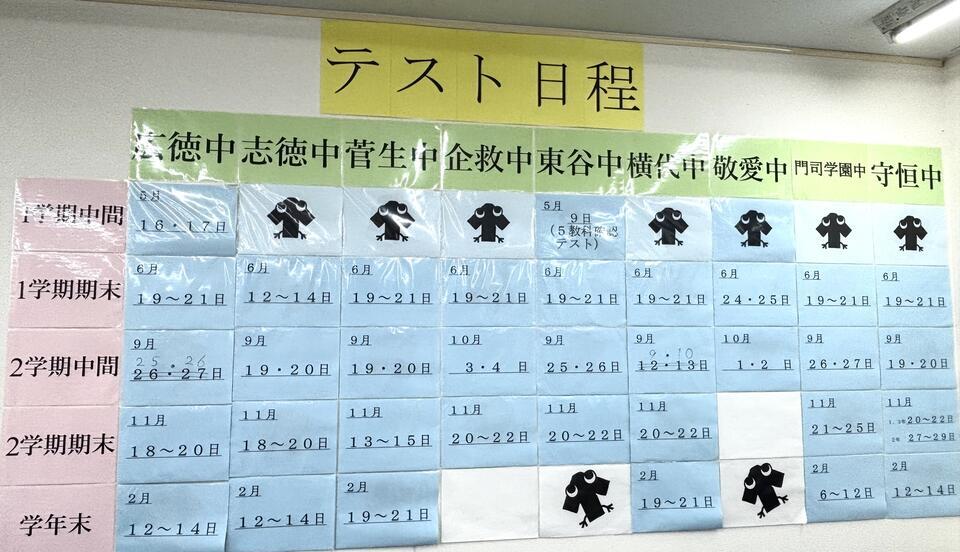 テスト日程
広徳中 志徳中 菅生中 企救中 東谷中 横代中 敬愛中 門司学園中 守恒中
1学期中間
5月
16・17日
5月
9日
(5教科確認
テスト)
1学期期末
6月 6月 6月 6月 6月 6月 6月 6月 6月
19～21日 12～14日 19～21日 19～21日 19～21日 19～21日 24・25日 19～21日 19～21日
2学期中間
9月 9月 9月 10月 9月 9月 10月 9月 9月
25・26 9・10
26・27日 19・20日 19・20日 3・4 日 25・26日 12・13日 1・2 日 26・27日 19・20日
2学期期末
11月 11月 11月 11月 11月 11月 11月 11月
18～20日 18～20日 13～15日 20～22日 20～22日 20～22日 21～25日 1.3年20～22日
2年 27～29日
学年末
2月 2月 2月 2月 2月 2月
12～14日 12～14日 19～21日 19～21日 6～12日 12～14日